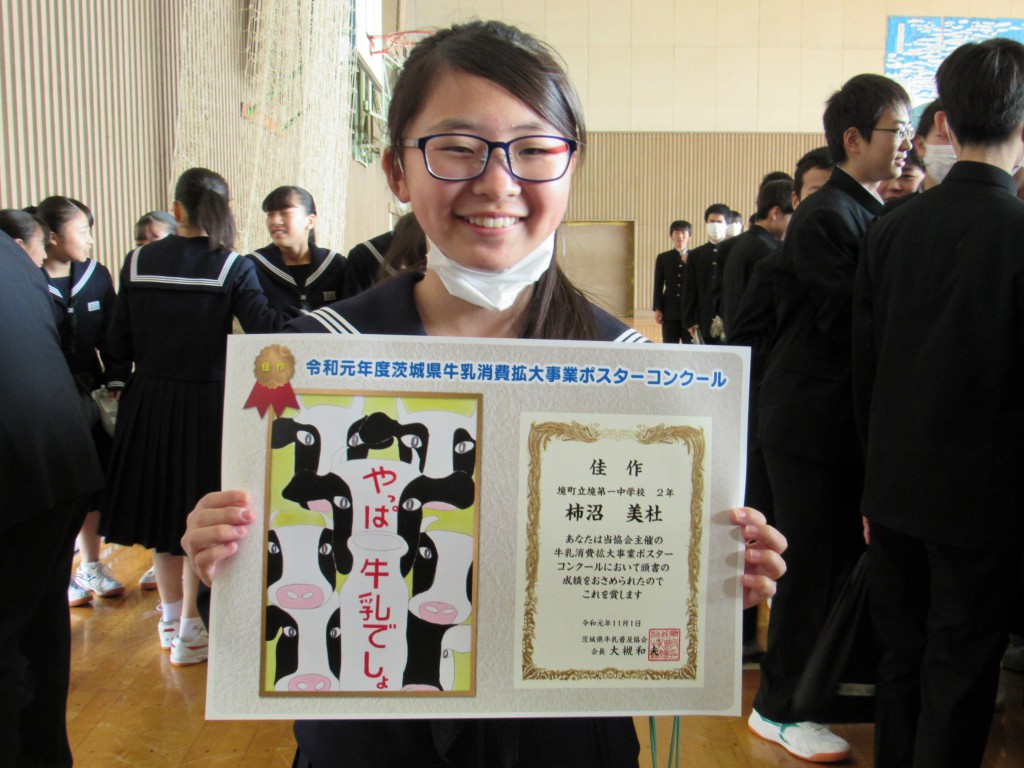 佳作
令和元年度茨城県牛乳消費拡大事業ポスターコンクール
やっぱ
牛乳でしょ
佳 作
境町立境第一中学校 2年
柿沼 美社
あなたは当協会主催の
牛乳消費拡大事業ポスター
コンクールにおいて頭書の
成績をおさめられたので
これを賞します
令和元年11月1日
茨城県牛乳普及協会
会長 大槻和夫